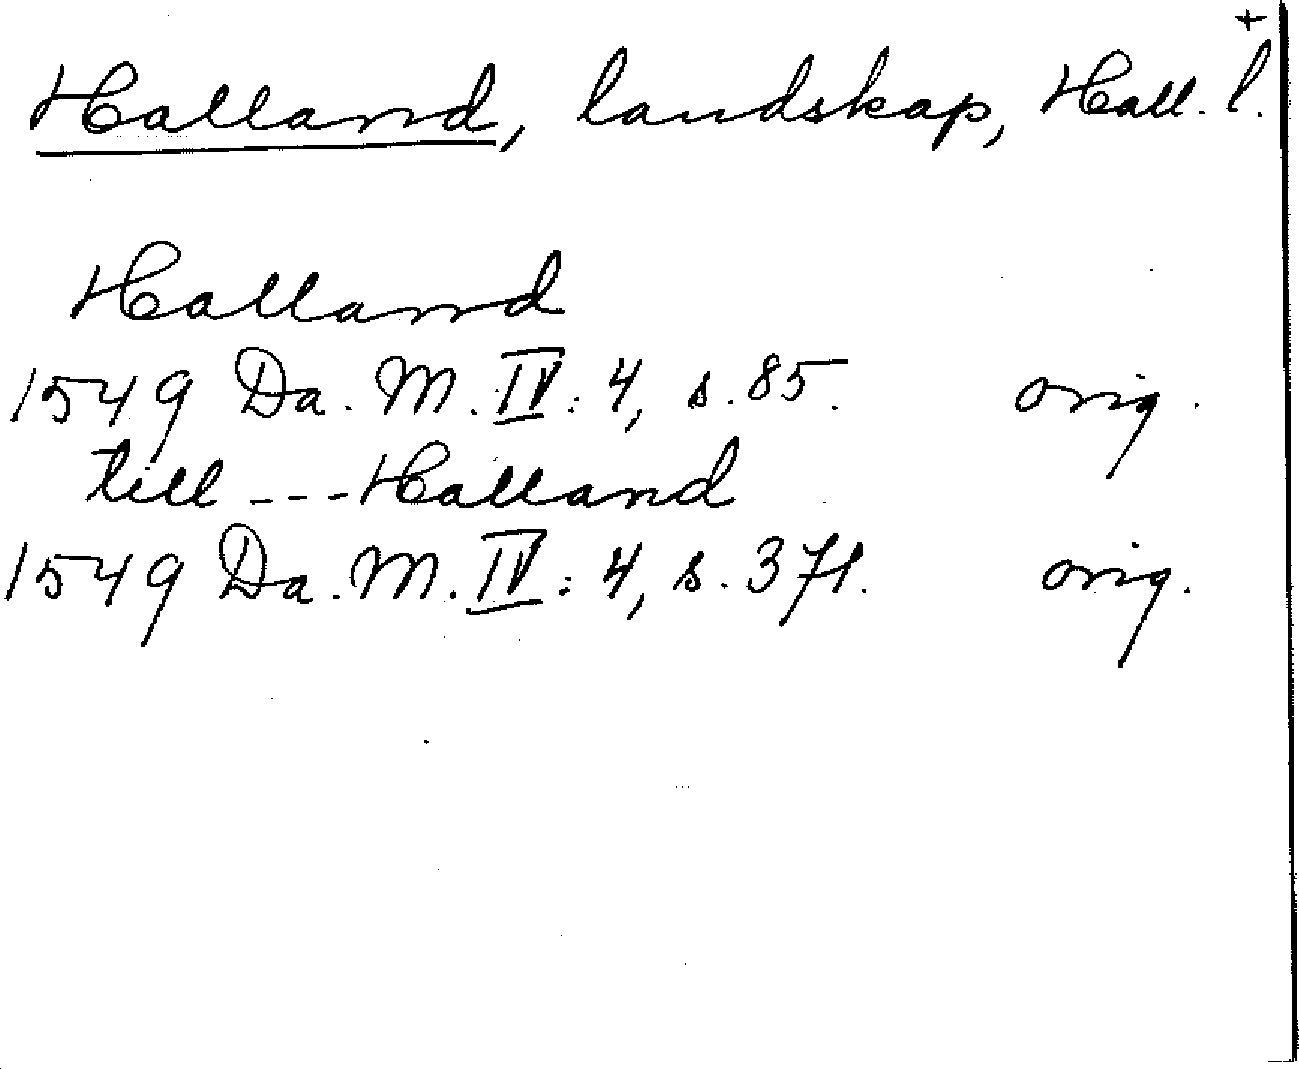 +
Halland, landskap, Hall. l.
Halland
1549 Da. M. IV: 4, s. 85. orig.
till --- Halland
1549 Da. M. IV: 4, s. 371. orig.